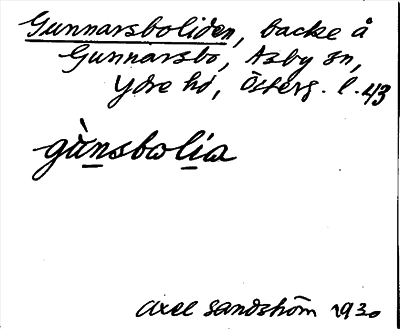 Gunnarsboliden, backe å
Gunnarsbo, Asby sn,
Ydre hd, Österg. l. 43
gùnsbωlia
Axel Sandström 1930